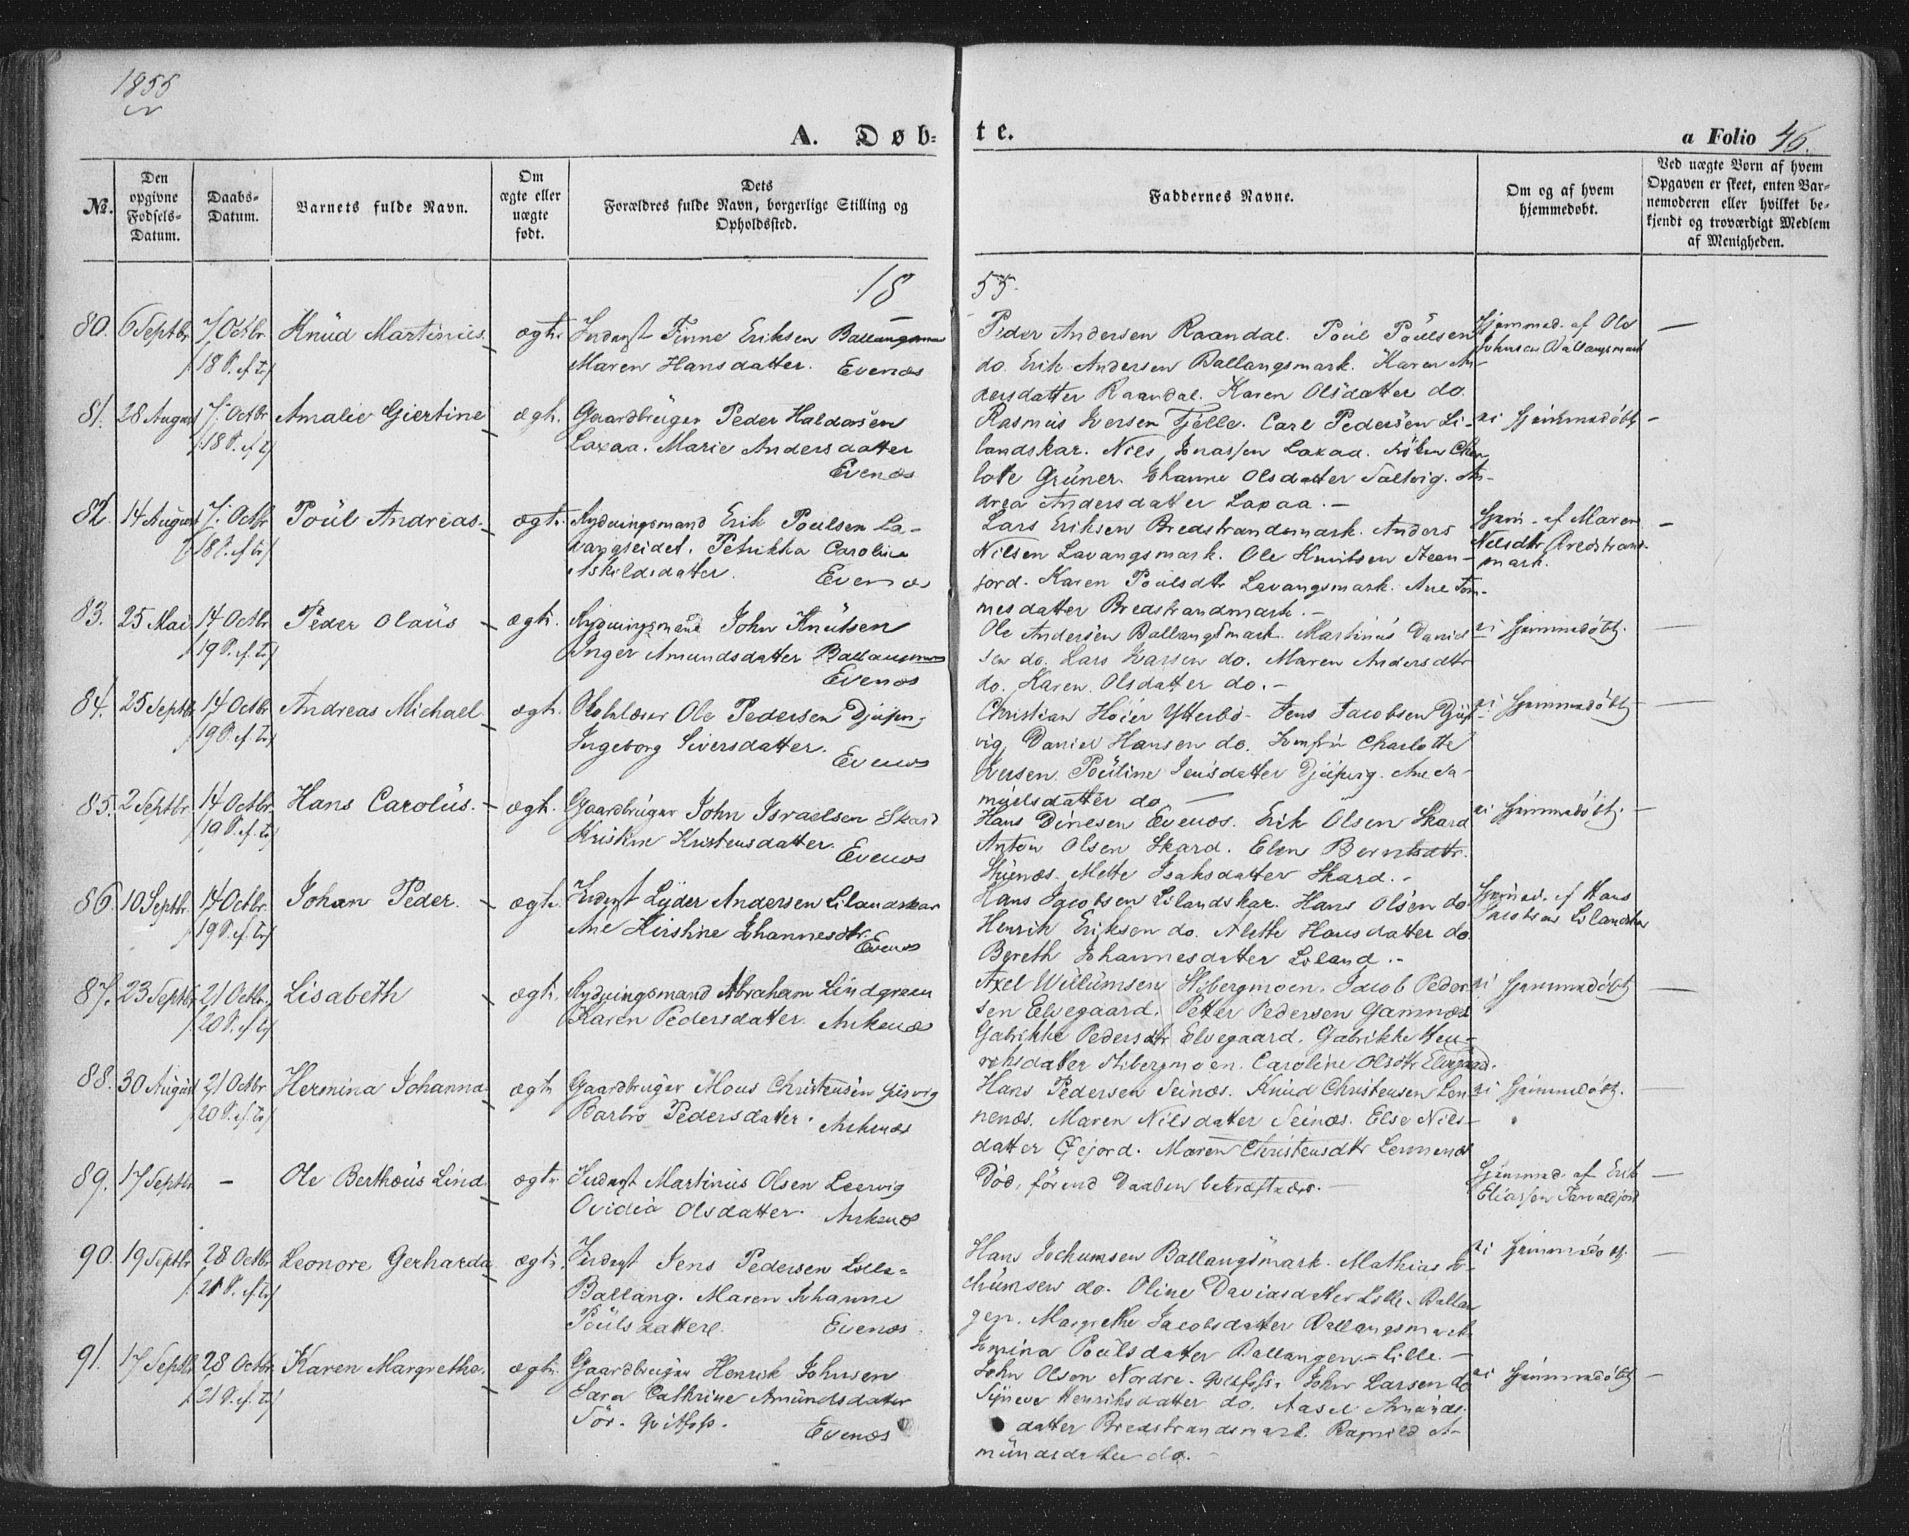 1855
A. Døb-
te.
a Folio 46.
№.
Den opgivne Fødsels-Datum.
Daabs-Datum.
Barnets fulde Navn.
Om ægte eller uægte født.
Dets Forældres fulde Navn, borgerlige Stilling og Opholdssted.
Faddernes Navne.
Om og af hvem hjemmedøbt.
Ved uægte Børn af hvem Opgaven er skeet, enten Barnemoderen eller hvilket bekjendt og troværdigt Medlem af Menigheden.
18
55.
80. 6 Septbr 7 Octbr Knud Martinus. ægte. Inderst Finne Eriksen Ballangsmark
18 S. ef. Tr. Maren Hansdatter. Evenæs
Peder Andersen Raandal. Poul Poulsen
do. Erik Andersen Ballangsmark. Karen An-
dersdatter Raandal. Karen Olsdatter do.
Hjemmed. af Ole
Johnsen Ballangsmark
81. 28 August 7 Octbr Amalie Giertine ægte. Gaardbruger Peder Haldorsen
18 S. ef. Tr. Laxaa. Marie Andersdatter
Evenæs
Rasmus Iversen Fjelle. Carl Pedersen Li-
landskar. Nils Jonassen Laxaa. Frøken Char-
lotte Grüner. Johanne Olsdatter Taltvig. An-
drea Andersdatter Laxaa. -
ei hjemmedøbt
82. 14 August 7 Octbr Poul Andreas. ægte. Rydningsmand Erik Poulsen La-
18 S. ef. Tr. vangseidet. Petrikka Caroline
Askildsdatter. Evenæs
Lars Eriksen Bredstrandsmark. Anders
Nilsen Lavangsmark. Ole Knutsen Steen-
fjord. Karen Poulsdtr Lavangsmark. Ane Tom-
mesdatter Bredstrandmark. -
Hjem. af Maren
Nilsdtr Bredstrand-
mark.
83. 25 Mai 14 Octbr Peder Olaus ægte. Rydningsmand John Knutsen
19 S. ef. Tr. Inger Amundsdatter Ballangsmark
Evenæs
Ole Andersen Ballangsmark. Martinus Daniel-
sen do. Lars Larsen do. Maren Andersdtr
do. Karen Olsdatter do. -
ei hjemmedøbt.
84. 25 Septbr 14 Octbr Andreas Michael ægte. Ole Pedersen Djupvig
19 S. ef. Tr. Ingeborg Siversdatter. Evenæs
Christian Høier Ytterbø. Jens Jacobsen Djup-
vig, Daniel Hansen do. Jomfru Charlotte
Iversen. Pouline Jensdatter Djupvig. Ane Sa-
muelsdatter do.
ei hjemmedøbt
85. 2 Septbr 14 Octbr Hans Carolus. ægte. Gaardbruger John Israelsen Skard
19 S. ef. Tr. Kristine Kristensdatter. Evenæs
Hans Dinesen Evenæs. Erik Olsen Skard
Anton Olsen Skard. Elen Berntsdtr.
Mette Isaksdatter Skard. -
ei hjemmedøbt.
86. 10 Septbr 14 Octbr Johan Peder. ægte. Inderst Lyder Andersen Lilandskar
19 S. ef. Tr. Ane Kirstine Johannesdtr. Evenæs
Hans Jacobsen Lilandskar. Hans Olsen do
Henrik Eriksen do. Alette Hansdatter do.
Bereth Johannesdatter Liland. -
Hjemmed. af Hans
Jacobsen Lilandskar
87. 23 Septbr 21 Octbr Lisabeth ægte. Rydningsmand Abraham Lindgreen
20 S. ef. Tr. Karen Pedersdatter. Ankenæs
Axel Willumsen Hibergmoen. Jacob Peder-
sen Elvegaard. Petter Pedersen Gamnæs
Gabrikke Pedersdtr Elvegaard. Gabrikke Hen-
riksdatter Hibergmoen. Caroline Olsdtr Elvegaard.
ei hjemmedøbt
88. 30 August 21 Octbr Hermina Johanna ægte Gaardbruger Mons Christensen
20 S. ef. Tr. Barbro Pedersdatter. Ankenæs
Hans Pedersen Seinæs. Knud Christensen Len-
nenæs. Maren Nilsdatter Seinæs. Else Nils-
datter Øefjord. Maren Christensdtr Lennenæs
ei hjemmedøbt.
89. 17 Septbr - Ole Bertheus Lind ægte Inderst Martinus Olsen Leervig
Ovidia Olsdatter. Ankenæs
Død, førend Daaben bekræftedes. -
Hjemmed. af Erik
Eliassen
90. 19 Septbr 28 Octbr Leonore Gerharda ægte. Inderst Jens Pedersen Lille-
21 S. ef. Tr. Ballang. Maren Johanne
Poulsdatter. Evenæs.
Hans Jochumsen Ballangsmark. Mathias Jo-
chumsen do. Oline Davidsdatter Lille-Ballan-
gen. Margrethe Jacobsdatter Ballangsmark
Jomina Poulsdatter Ballangen-Lille. -
ei hjemmedøbt.
91. 17 Septbr 28 Octbr Karen Margrethe. ægte. Gaardbruger Henrik Johnsen
21 S. ef. Tr. Sara Cathrine Amundsdatter
Sør-Qvitfoss. Evenæs
John Olson Nordre-Qvitfoss. John Larsen do
Synneve Henriksdatter do. Aasel Amunds-
datter Bredstrandsmark. Ragnild A-
mundsdatter do. -
ei hjemmedøbt